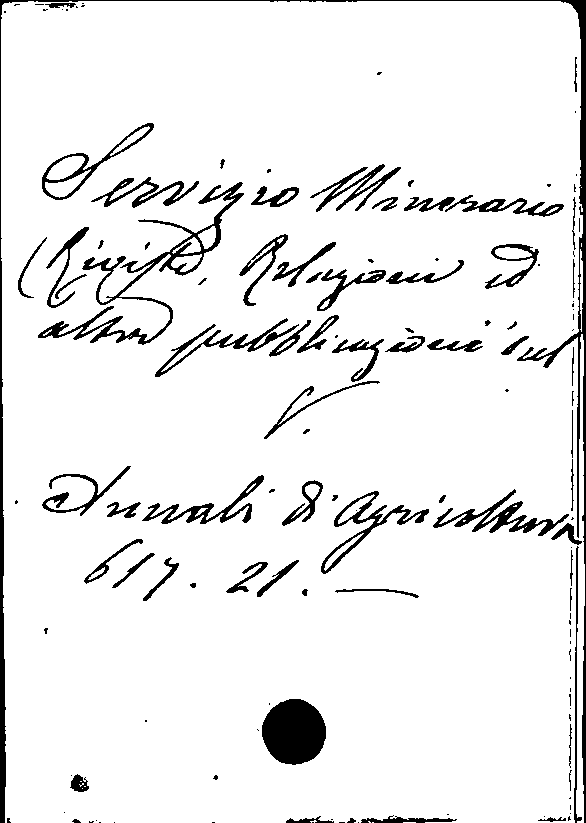 Servizio Minerario
(Riviste, Relazioni ed
altre pubblicazioni sul
V.
Annali di Agricoltura
617. 21. —